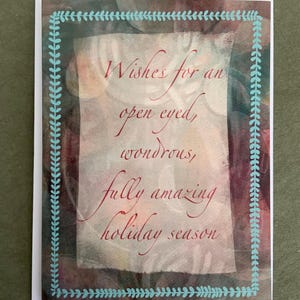 Wishes for an
open eyed,
wondrous,
fully amazing
holiday season